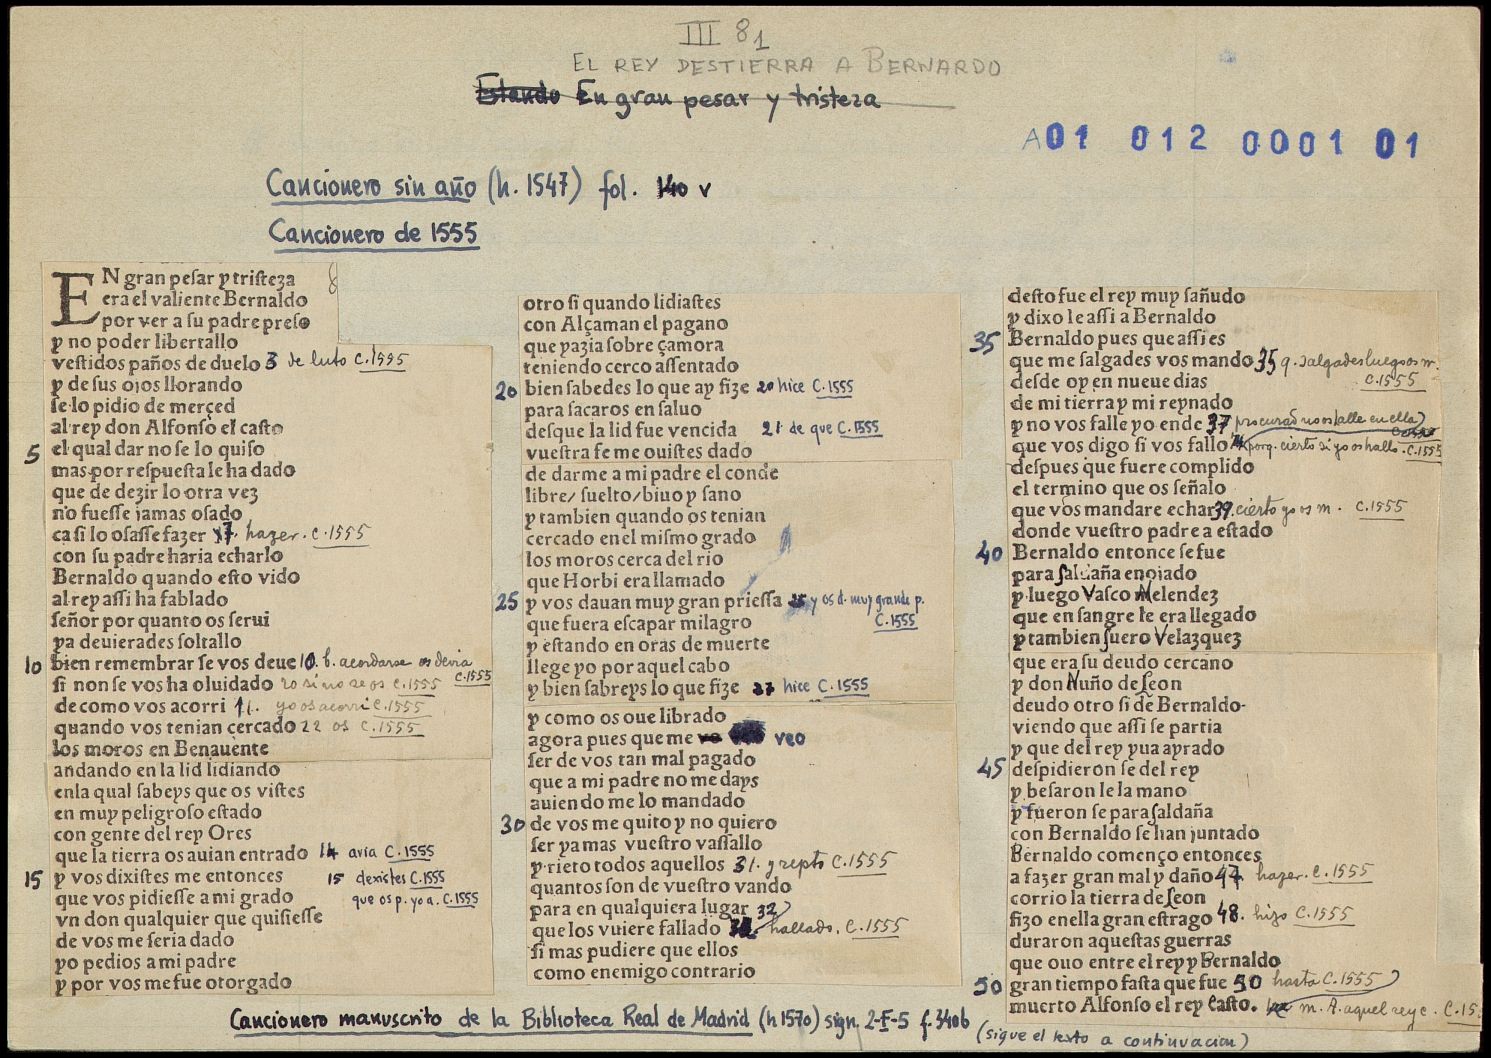 III 81
EL REY DESTIERRA A BERNARDO
Estando En gran pesar y tristeza
A01 012 0001 01
Cancionero sin año (h. 1547) fol. 140 v
Cancionero de 1555
EN gran pesar y tristeza 8
era el valiente Bernaldo
por ver a su padre preso
y no poder libertallo
vestidos paños de duelo 3 de luto C.1555
y de sus ojos llorando
se lo pidio de merçed
al rey don Alfonso el casto
5 el qual dar no se lo quiso
mas por respuesta le ha dado
que de dezir lo otra vez
no fuesse jamas osado
ca si lo osasse fazer 7. hazer. C.1555
con su padre haria echarlo
Bernaldo quando esto vido
al rey assi ha fablado
señor por quanto os serui
ya deuierades soltallo
10 bien remembrar se vos deue 10. b. acordarse os devia C.1555
si non se vos ha oluidado 10 si no se os C.1555
de como vos acorri 11. yo os acorri C.1555
quando vos tenian cercado 22 os C.1555
los moros en Benauente
andando en la lid lidiando
enla qual sabeys que os vistes
en muy peligroso estado
con gente del rey Ores
que la tierra os auian entrado 14 avia C.1555
15 y vos dixistes me entonces 15 dexistes C.1555
que vos pidiesse a mi grado que os p. yo a. C.1555
vn don qualquier que quisiesse
de vos me seria dado
yo pedios a mi padre
y por vos me fue otorgado
otro si quando lidiastes
con Alçaman el pagano
que yazia sobre çamora
teniendo cerco assentado
20 bien sabedes lo que ay fize 20 hice C.1555
para sacaros en saluo
desque la lid fue vencida 21 de que C.1555
vuestra fe me ouistes dado
de darme a mi padre el conde
libre/ suelto/biuo y sano
y tambien quando os tenian
cercado enel mismo grado
los moros cerca del rio
que Horbi era llamado
25 y vos dauan muy gran priessa 25 y os d. muy grande p. C.1555
que fuera escapar milagro
y estando en oras de muerte
llege yo por aquel cabo
y bien sabreys lo que fize 27 hice C.1555
y como os oue librado
agora pues que me veo
ser de vos tan mal pagado
que a mi padre no me days
auiendo me lo mandado
30 de vos me quito y no quiero
ser ya mas vuestro vassallo
y rieto todos aquellos 31. y repto C.1555
quantos son de vuestro vando
para en qualquiera lugar 32
que los vuiere fallado hallado. C.1555
si mas pudiere que ellos
como enemigo contrario
desto fue el rey muy sañudo
y dixo le assi a Bernaldo
35 Bernaldo pues que assi es
que me salgades vos mando 35 q. salgades luego os m. C.1555
desde oy en nueue dias
de mi tierra y mi reynado
y no vos falle yo ende 37 procurad no os halle en ella
que vos digo si vos fallo porq. cierto si yo os hallo. C.1555
despues que fuere complido
el termino que os señalo
que vos mandare echar 39. cierto yo os m. C.1555
donde vuestro padre a estado
40 Bernaldo entonce se fue
para saldaña enojado
y luego Vasco Melendez
que en sangre le era llegado
y tambien suero Velazquez
que era su deudo cercano
y don Nuño de Leon
deudo otro si de Bernaldo
viendo que assi se partia
y que del rey yua ayrado
45 despidieron se del rey
y besaron le la mano
y fueron se para saldaña
con Bernaldo se han juntado
Bernaldo començo entonces
a fazer gran mal y daño 47 hazer. C.1555
corrio la tierra de Leon
fizo enella gran estrago 48. hizo C.1555
duraron aquestas guerras
que ouo entre el rey y Bernaldo
50 gran tiempo fasta que fue 50 hasta C.1555
muerto Alfonso el rey Casto. m. A. aquel rey c. C.15
Cancionero manuscrito de la Biblioteca Real de Madrid (h 1570) sign. 2-F-5 f. 340b
(sigue el texto a continuacion)